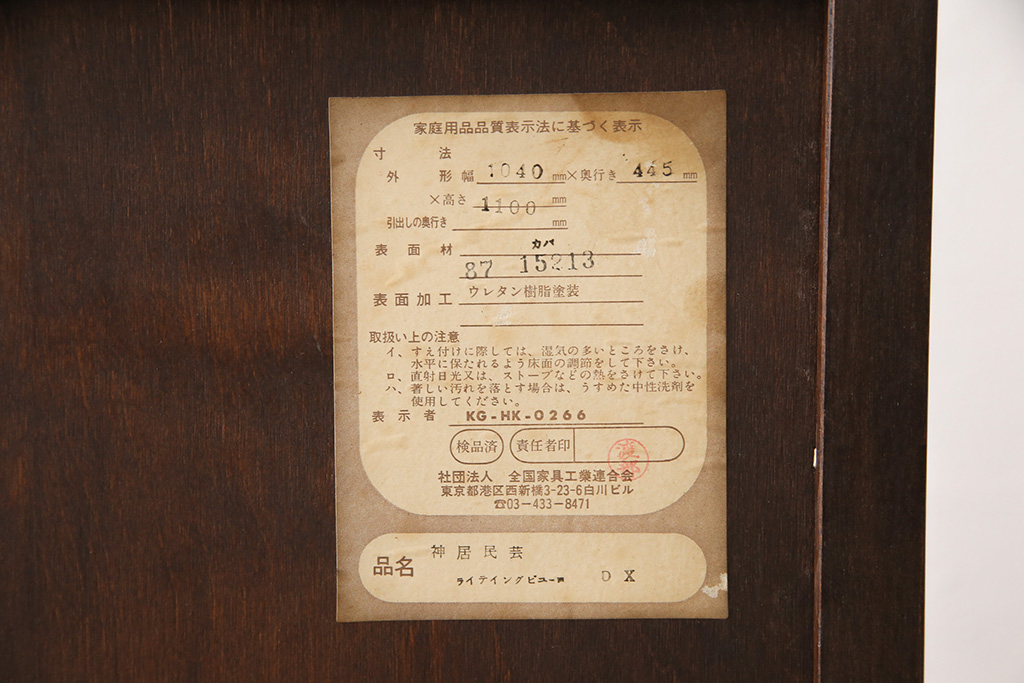 家庭用品品質表示法に基づく表示
寸法
外形 幅 1040 mm×奥行き 445 mm
×高さ 1100 mm
引出しの奥行き mm
表面材 カバ
87 15213
表面加工 ウレタン樹脂塗装
取扱い上の注意
イ、すえ付けに際しては、湿気の多いところをさけ、
水平に保たれるよう床面の調節をして下さい。
ロ、直射日光又は、ストーブなどの熱をさけて下さい。
ハ、著しい汚れを落とす場合は、うすめた中性洗剤を
使用してください。
表示者 KG-HK-0266
検品済 責任者印
社団法人 全国家具工業連合会
東京都港区西新橋3-23-6白川ビル
☎03-433-8471
品名 神居民芸
ライテイングビューロ DX